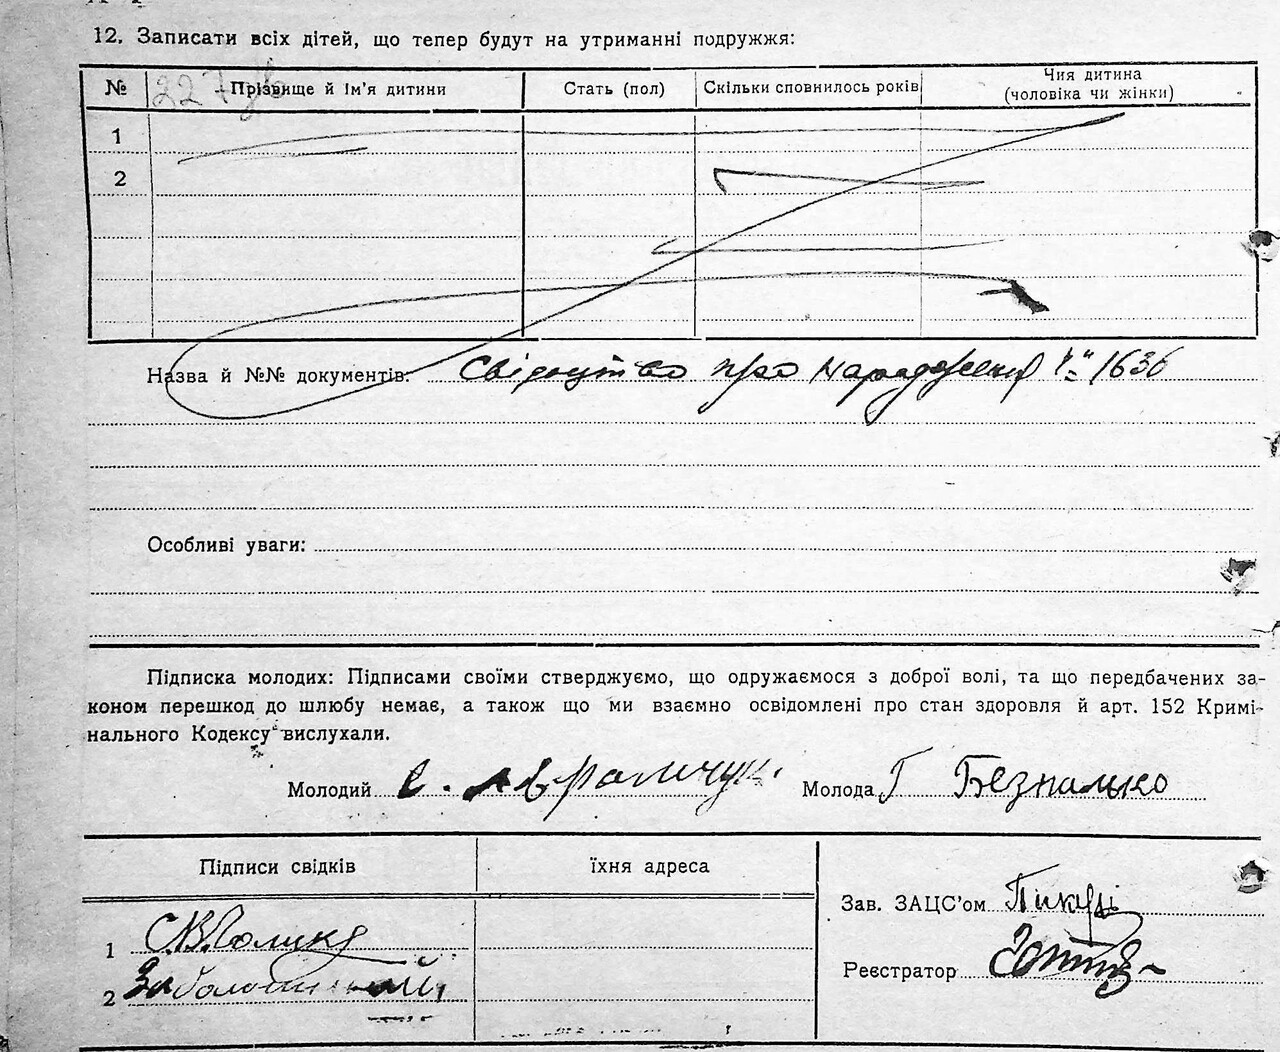 12. Записати всіх дітей, що тепер будут на утриманні подружжя:
№ Прізвище й ім'я дитини Стать (пол) Скільки сповнилось років Чия дитина
(чоловіка чи жінки)
1
2
Назва й №№ документів: Свідоцтво про народження 1636
Особливі уваги:
Підписка молодих: Підписами своїми стверджуємо, що одружаємося з доброї волі, та що передбачених за-
коном перешкод до шлюбу немає, а також що ми взаємно освідомлені про стан здоровля й арт. 152 Кримі-
нального Кодексу вислухали.
Молодий Аврамчук Молода Г Безпалько
Підписи свідків їхня адреса
Зав. ЗАЦС'ом
1
Реєстратор
2 Заболотний